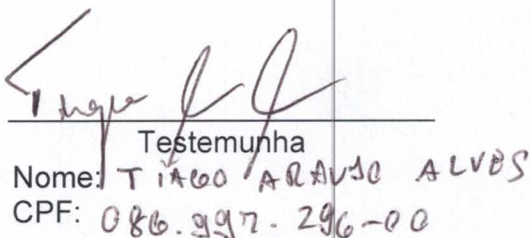 Tiago
Testemunha
Nome: TIAGO ARAUJO ALVES
CPF: 086.997.296-00